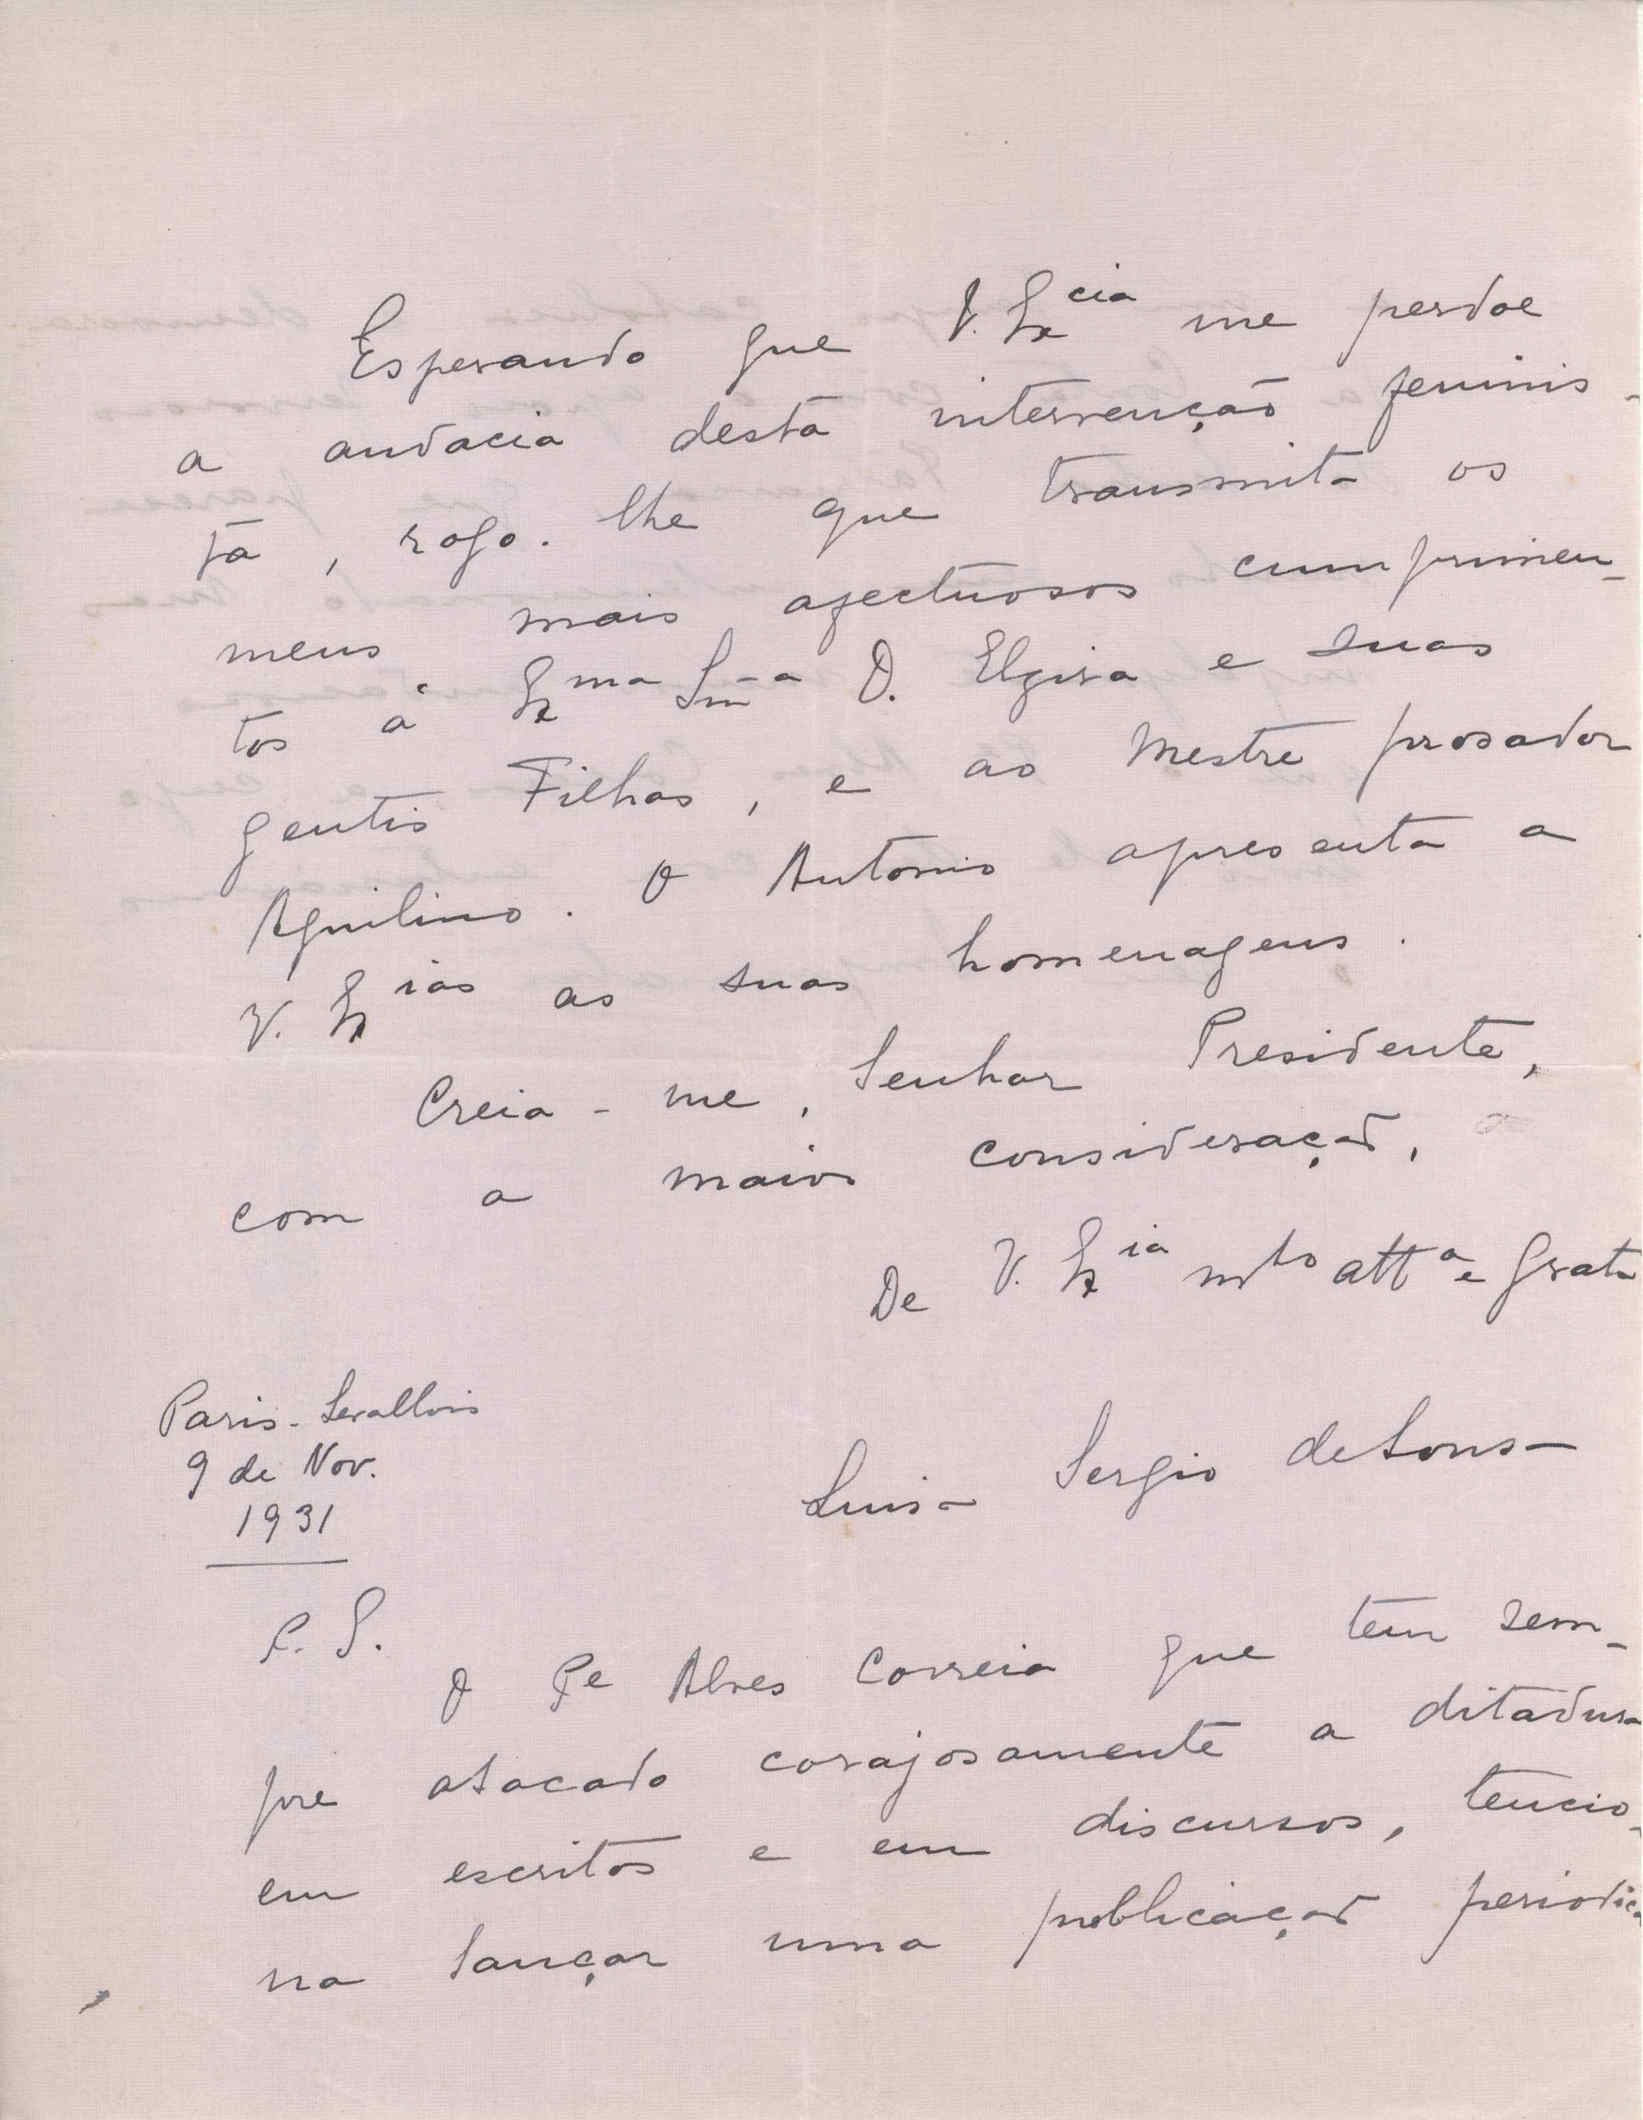 Esperando que V. Ex.cia me perdoe
a audacia desta intervenção feminis-
ta, rogo-lhe que transmita os
meus mais afectuosos cumprimen-
tos á Ex.ma Snr.a D. Elzira e suas
gentis Filhas, e ao Mestre prosador
Aquilino. O Antonio apresenta a
V. Ex.ias as suas homenagens.
Creia-me, Senhor Presidente,
com a maior consideração,
De V. Ex.ia m.to att.a e grata
Paris-Levallois
9 de Nov.
1931
Luisa Sergio de Sousa
P. S.
O P.e Alves Correia que tem sem-
pre atacado corajosamente a ditadura
em escritos e em discursos, tencio-
na lançar uma publicação periodica